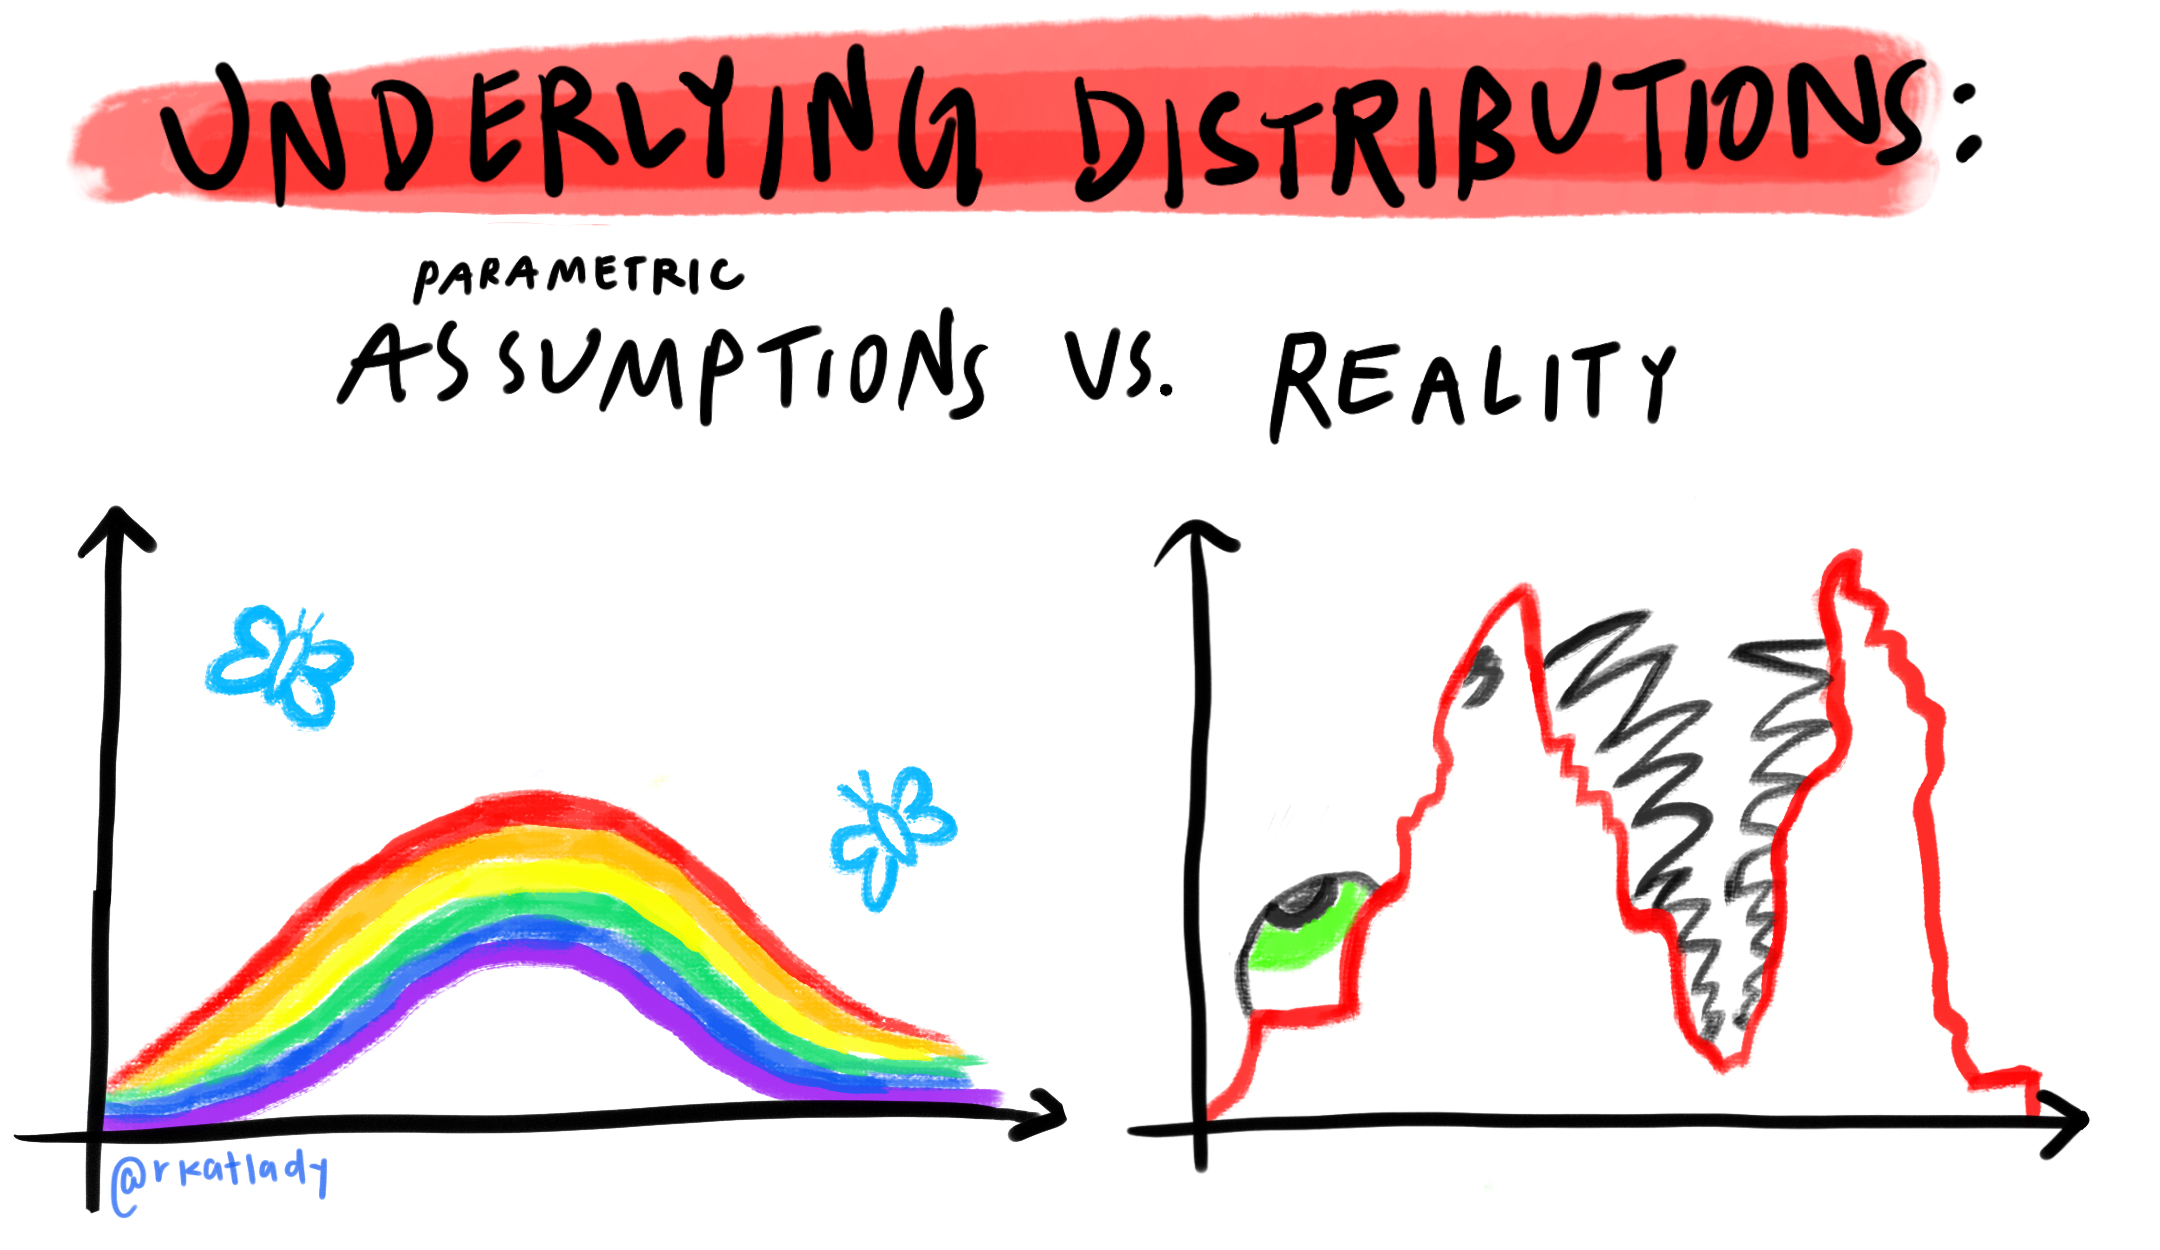 UNDERLYING DISTRIBUTIONS:
PARAMETRIC
ASSUMPTIONS VS. REALITY
@rkatlady